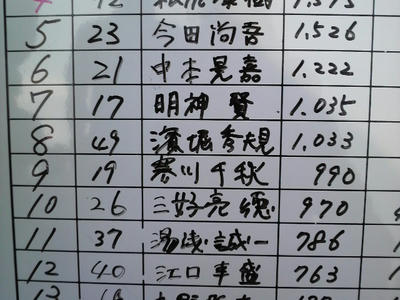 5 23 今田尚吾 1,526
6 21 中本晃嘉 1,222
7 17 明神 賢 1.035
8 49 濱堀秀規 1,033
9 19 寒川千秋 990
10 26 三好亮徳 970
11 37 湯浅誠一 786
12 40 江口幸盛 763